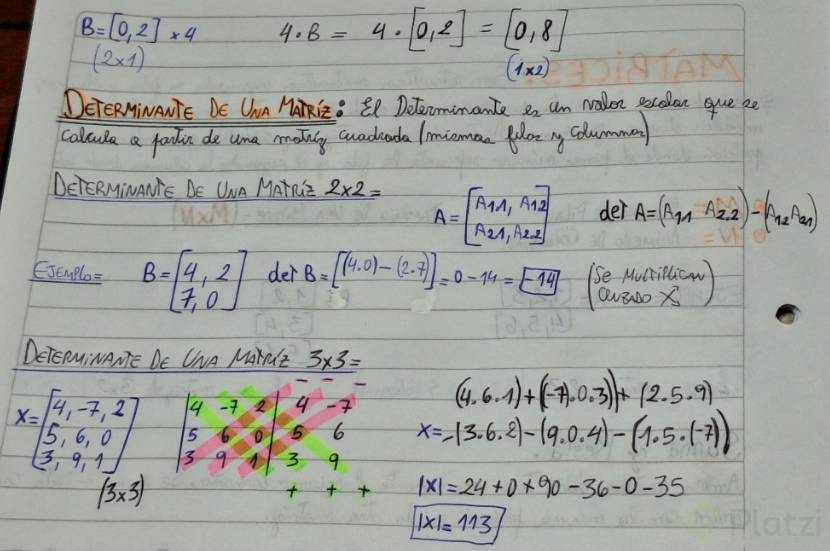 B=[0,2] x4 4·B = 4·[0,2] = [0,8]
(2x1) (1x2)
DETERMINANTE DE UNA MATRÍZ: El Determinante es un valor escalar que se
calcula a partir de una matríz cuadrada (mismas filas y columnas)
DETERMINANTE DE UNA MATRIZ 2x2=
A=[A11, A12 det A=(A11 A2.2)-(A12 A21)
A21, A2.2]
EJEMPLO= B=[4, 2 det B=[(4.0)-(2.7)]=0-14=[-14] (SE MULTIPLICAN
7, 0] CRUZADO X)
DETERMINANTE DE UNA MATRIZ 3x3=
X=[4, -7, 2 |4 -7 2| 4 -7 (4.6.1)+(-7).0.3))+(2.5.9)
5, 6, 0 |5 6 0| 5 6 X=-(3.6.2)-(9.0.4)-(1.5.(-7))
3, 9, 1] |3 9 1| 3 9
(3x3) + + + |X|=24+0+90-36-0-35
|X|=113
Platzi